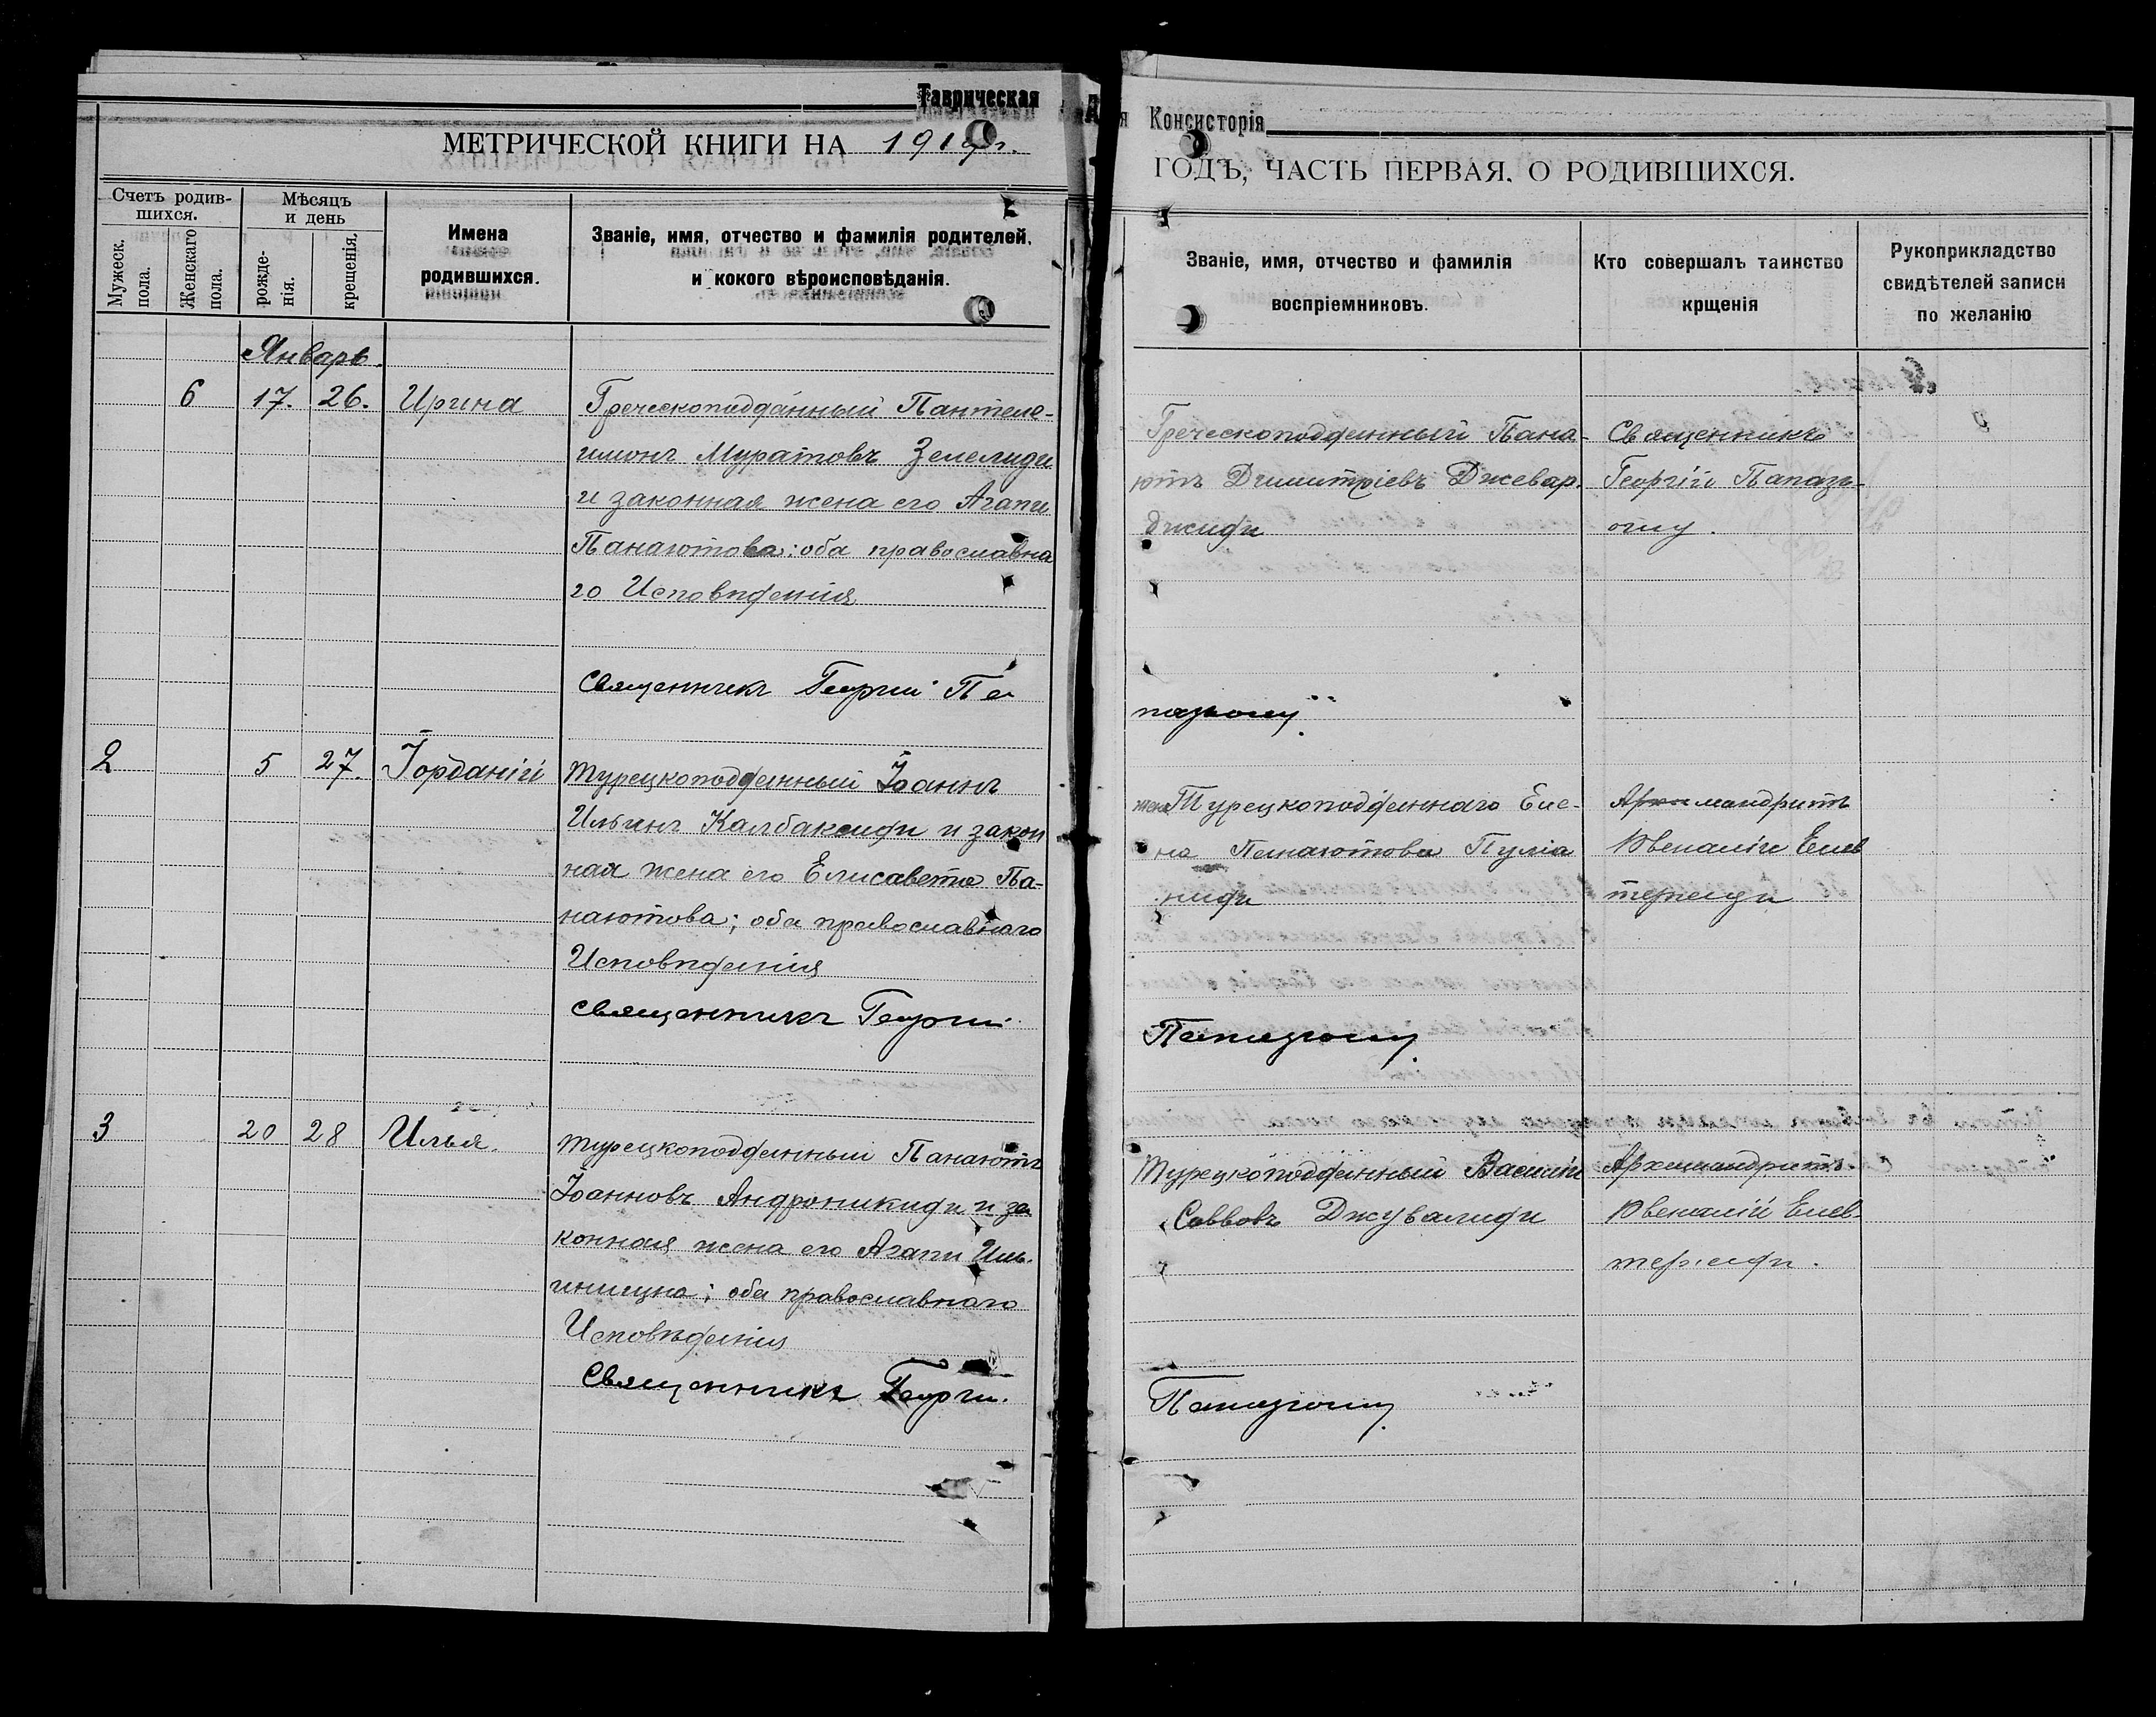 Таврическая
Консисторія
МЕТРИЧЕСКОЙ КНИГИ НА 191 г.
ГОДЪ, ЧАСТЬ ПЕРВАЯ. О РОДИВШИХСЯ.
Счетъ родив-
шихся.
Мужеск.
пола.
Женскаго
пола.
Мѣсяцъ
и день
рожде-
нія.
крещенія.
Имена
родившихся.
Званіе, имя, отчество и фамилія родителей,
и кокого вѣроисповѣданія.
Званіе, имя, отчество и фамилія
воспріемниковъ.
Кто совершалъ таинство
крщенія
Рукоприкладство
свидѣтелей записи
по желанію
Январь.
6 17. 26. Ирина
Греческоподданный Пантеле-
имонъ Муратовъ Зелелиди
и законная жена его Агапи
Панаютова: оба православна
го Исповѣденія
Священникъ Георгій Па
Греческоподданный Пана-
ютъ Димитріевъ Джевар-
джиди
Священникъ
Георгій Папазъ-
оглу.
пазъоглу.
2 5 27. Іорданій
Турецкоподданный Іоаннъ
Ильинъ Калбаксиди и закон
ная жена его Елисавета Па-
наютова; оба православнаго
Исповѣденія
Священникъ Георгій
жена Турецкоподданнаго Еле-
на Панаютова Пуліа
ниди
Архимандритъ
Ювеналій Елев
териди
Папазъоглу.
3 20 28 Илья.
Турецкоподданный Панаютъ
Іоанновъ Андроникиди и за
конная жена его Агапи Иль-
инична; оба православнаго
Исповѣденія
Священникъ Георгій.
Турецкоподданный Василій
Саввовъ Джувалиди
Архимандритъ
Ювеналій Елев-
териди.
Папазъоглу.